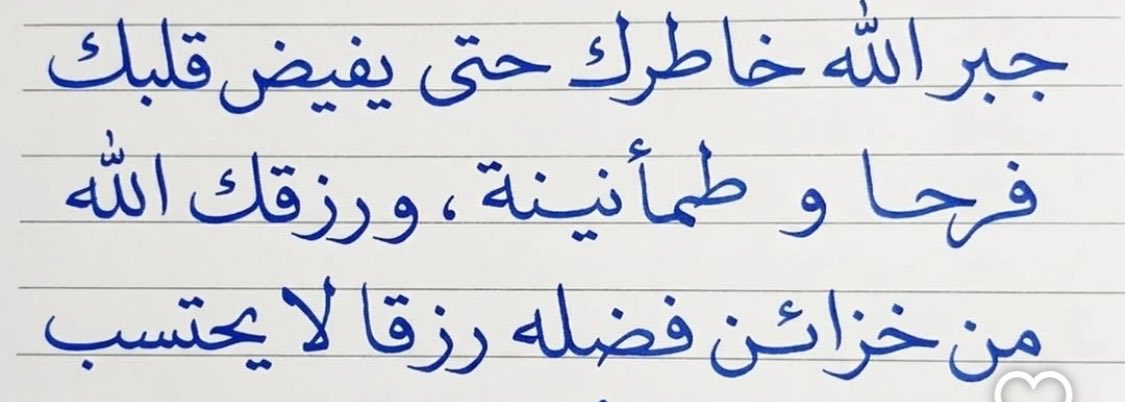 جبر الله خاطرك حتى يفيض قلبك
فرحا و طمأنينة ، ورزقك الله
من خزائن فضله رزقا لا يحتسب